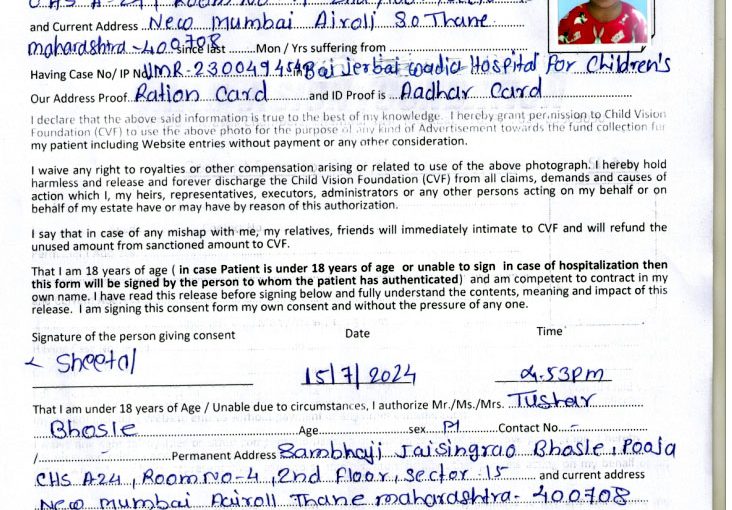 and Current Address New Mumbai Airoli So Thane
maharashtra - 400708 since last Mon / Yrs suffering from
Having Case No/ IP No UMR-230049454 Bai Jerbai Wadia Hospital For Children's
Our Address Proof Ration Card and ID Proof is Aadhar Card
I declare that the above said information is true to the best of my knowledge. I hereby grant permission to Child Vision
Foundation (CVF) to use the above photo for the purpose of any kind of Advertisement towards the fund collection for
my patient including Website entries without payment or any other consideration.
I waive any right to royalties or other compensation arising or related to use of the above photograph. I hereby hold
harmless and release and forever discharge the Child Vision Foundation (CVF) from all claims, demands and causes of
action which I, my heirs, representatives, executors, administrators or any other persons acting on my behalf or on
behalf of my estate have or may have by reason of this authorization.
I say that in case of any mishap with me, my relatives, friends will immediately intimate to CVF and will refund the
unused amount from sanctioned amount to CVF.
That I am 18 years of age ( in case Patient is under 18 years of age or unable to sign in case of hospitalization then
this form will be signed by the person to whom the patient has authenticated) and am competent to contract in my
own name. I have read this release before signing below and fully understand the contents, meaning and impact of this
release. I am signing this consent form my own consent and without the pressure of any one.
Signature of the person giving consent Date Time
Sheetal 15/7/2024 4.53pm
That I am under 18 years of Age / Unable due to circumstances, I authorize Mr./Ms./Mrs. Tushar
Bhosle Age sex M Contact No. -
/ - Permanent Address Sambhaji Jaisingrao Bhosle, Pooja
CHS A24, Room No-4, 2nd Floor, Sector 15 and current address
New Mumbai Airoli Thane maharashtra - 400708